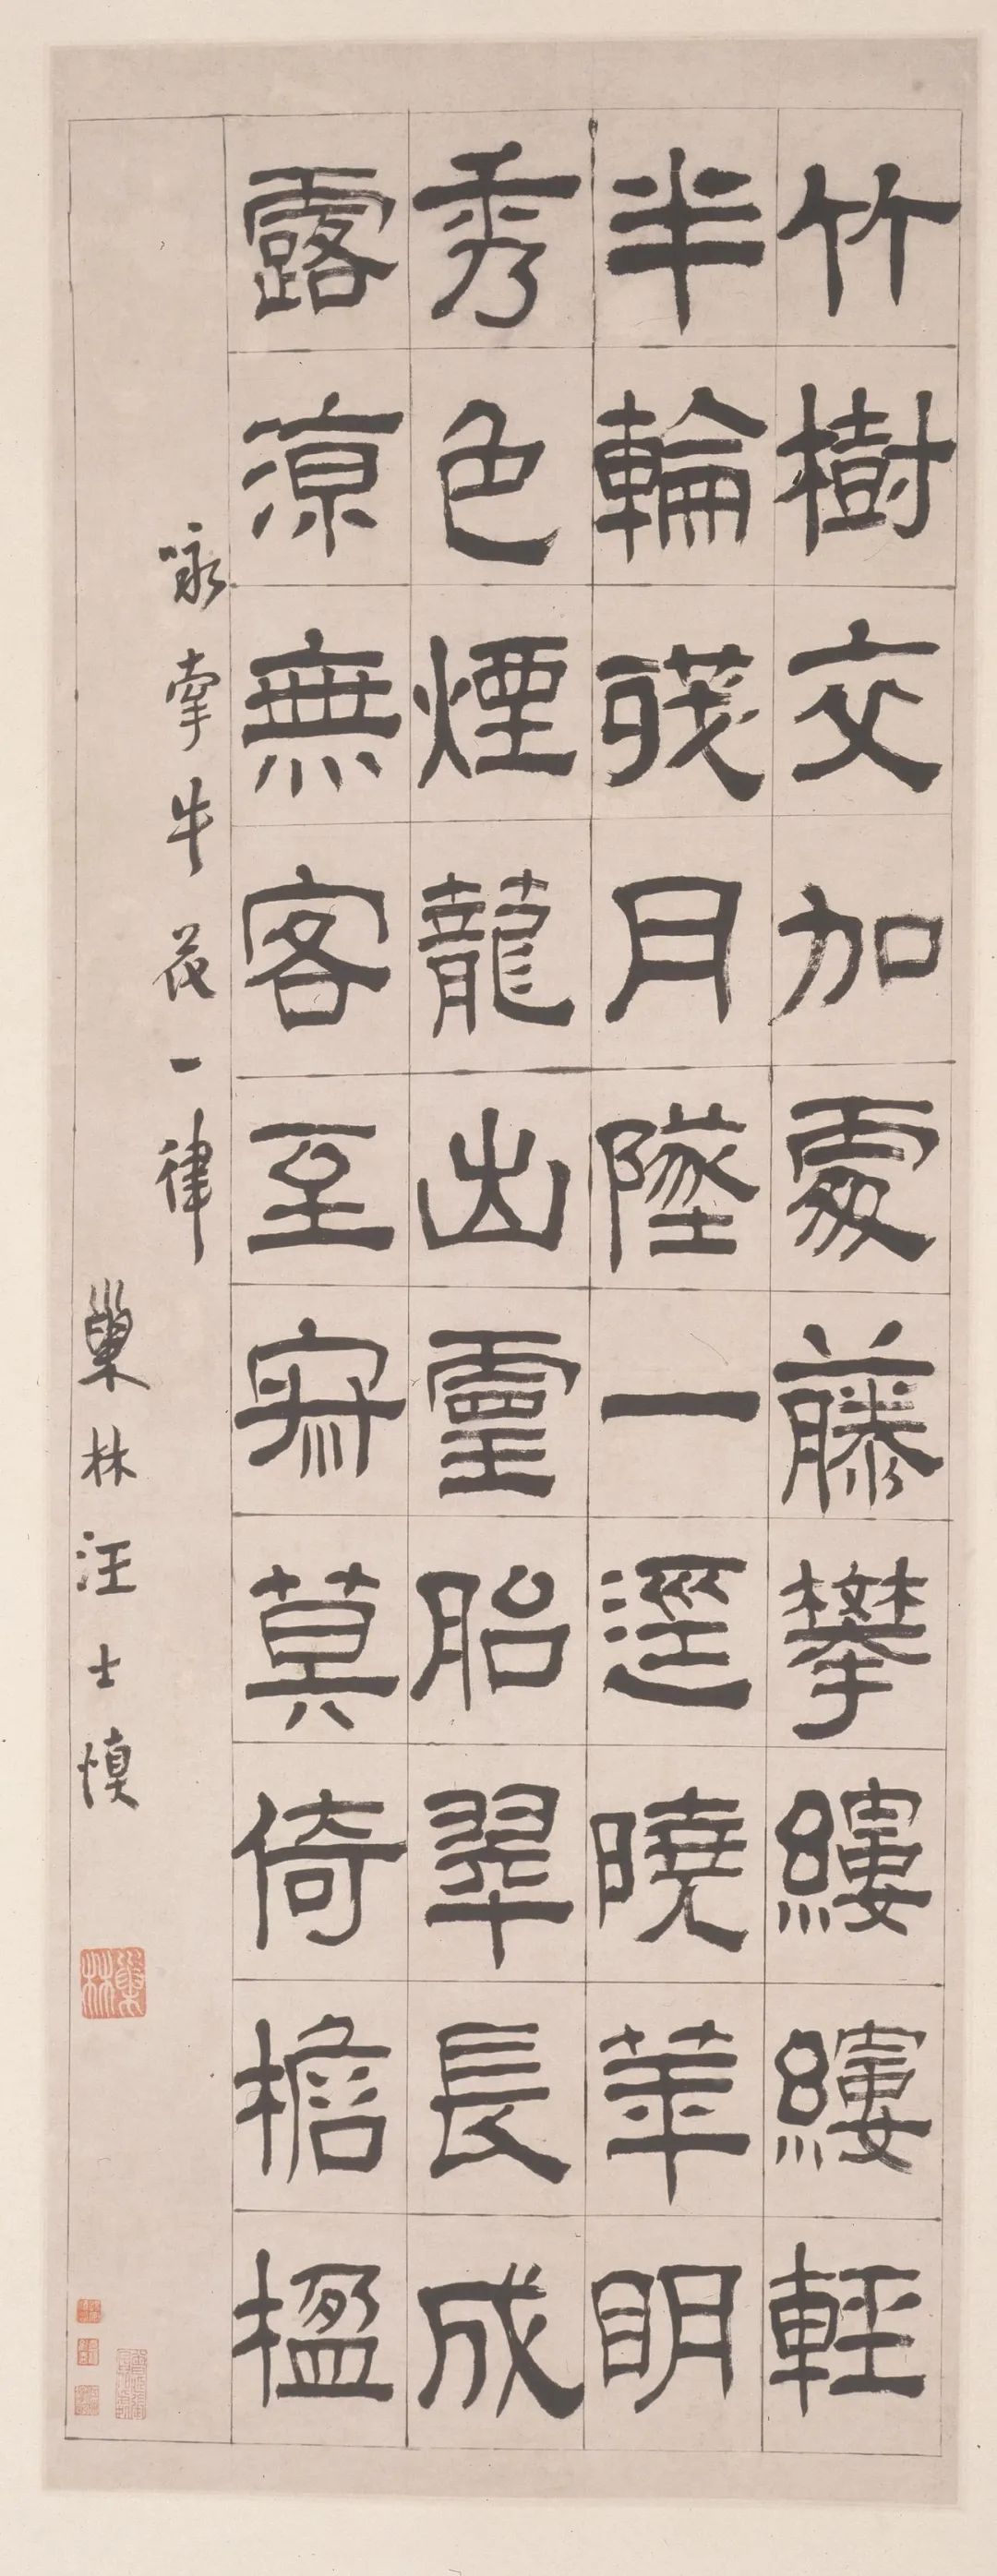 竹樹交加處藤攀縷縷輕
半輪殘月墜一逕曉華明
秀色煙蘢出靈胎翠長成
露涼無客至寂莫倚檐楹
詠牽牛花一律
巢林汪士慎
巢林